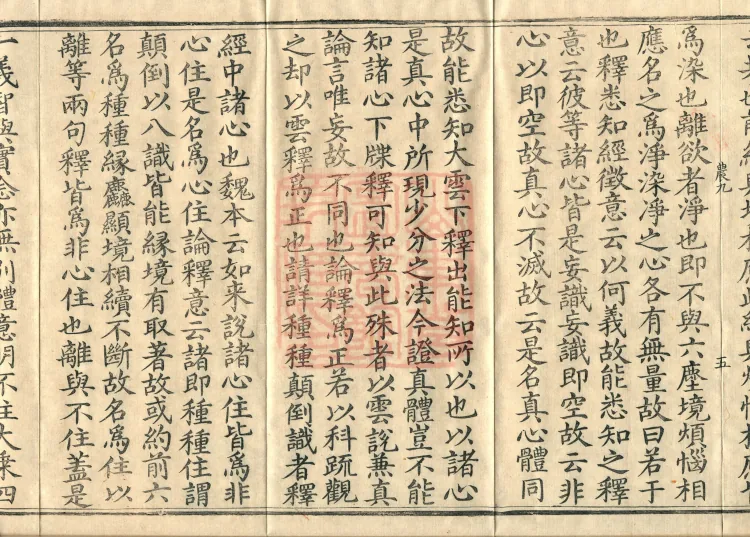 爲染也離欲者淨也即不與六塵境煩惱相
應名之爲淨染淨之心各有無量故曰若于
也釋悉知經徵意云以何義故能悉知之釋
意云彼等諸心皆是妄識妄識即空故云非
心以即空故真心不滅故云是名真心體同
農九
五
故能悉知大雲下釋出能知所以也以諸心
是真心中所現少分之法今證真體豈不能
知諸心下牒釋可知與此殊者以雲說兼真
論言唯妄故不同也論釋爲正若以科疏觀
之却以雲釋爲正也請詳種種顛倒識者釋
經中諸心也魏本云如来說諸心住皆爲非
心住是名爲心住論釋意云諸即種種住謂
顛倒以八識皆能緣境有取著故或約前六
名爲種種緣麤顯境相續不斷故名爲住以
離等兩句釋皆爲非心住也離與不住蓋是